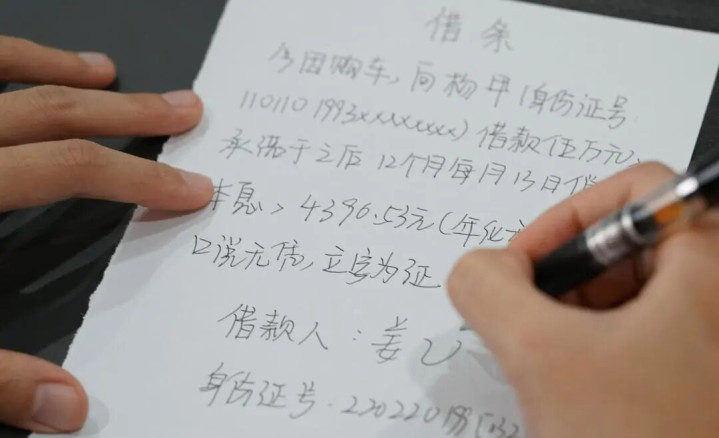 借条
今因购车,向杨甲(身份证号
1101101993xxxxxxxx)借款伍万元,
承诺于之后12个月每月13日偿
本息 4396.53元(年化
口说无凭,立字为证
借款人:姜
身份证号:220220